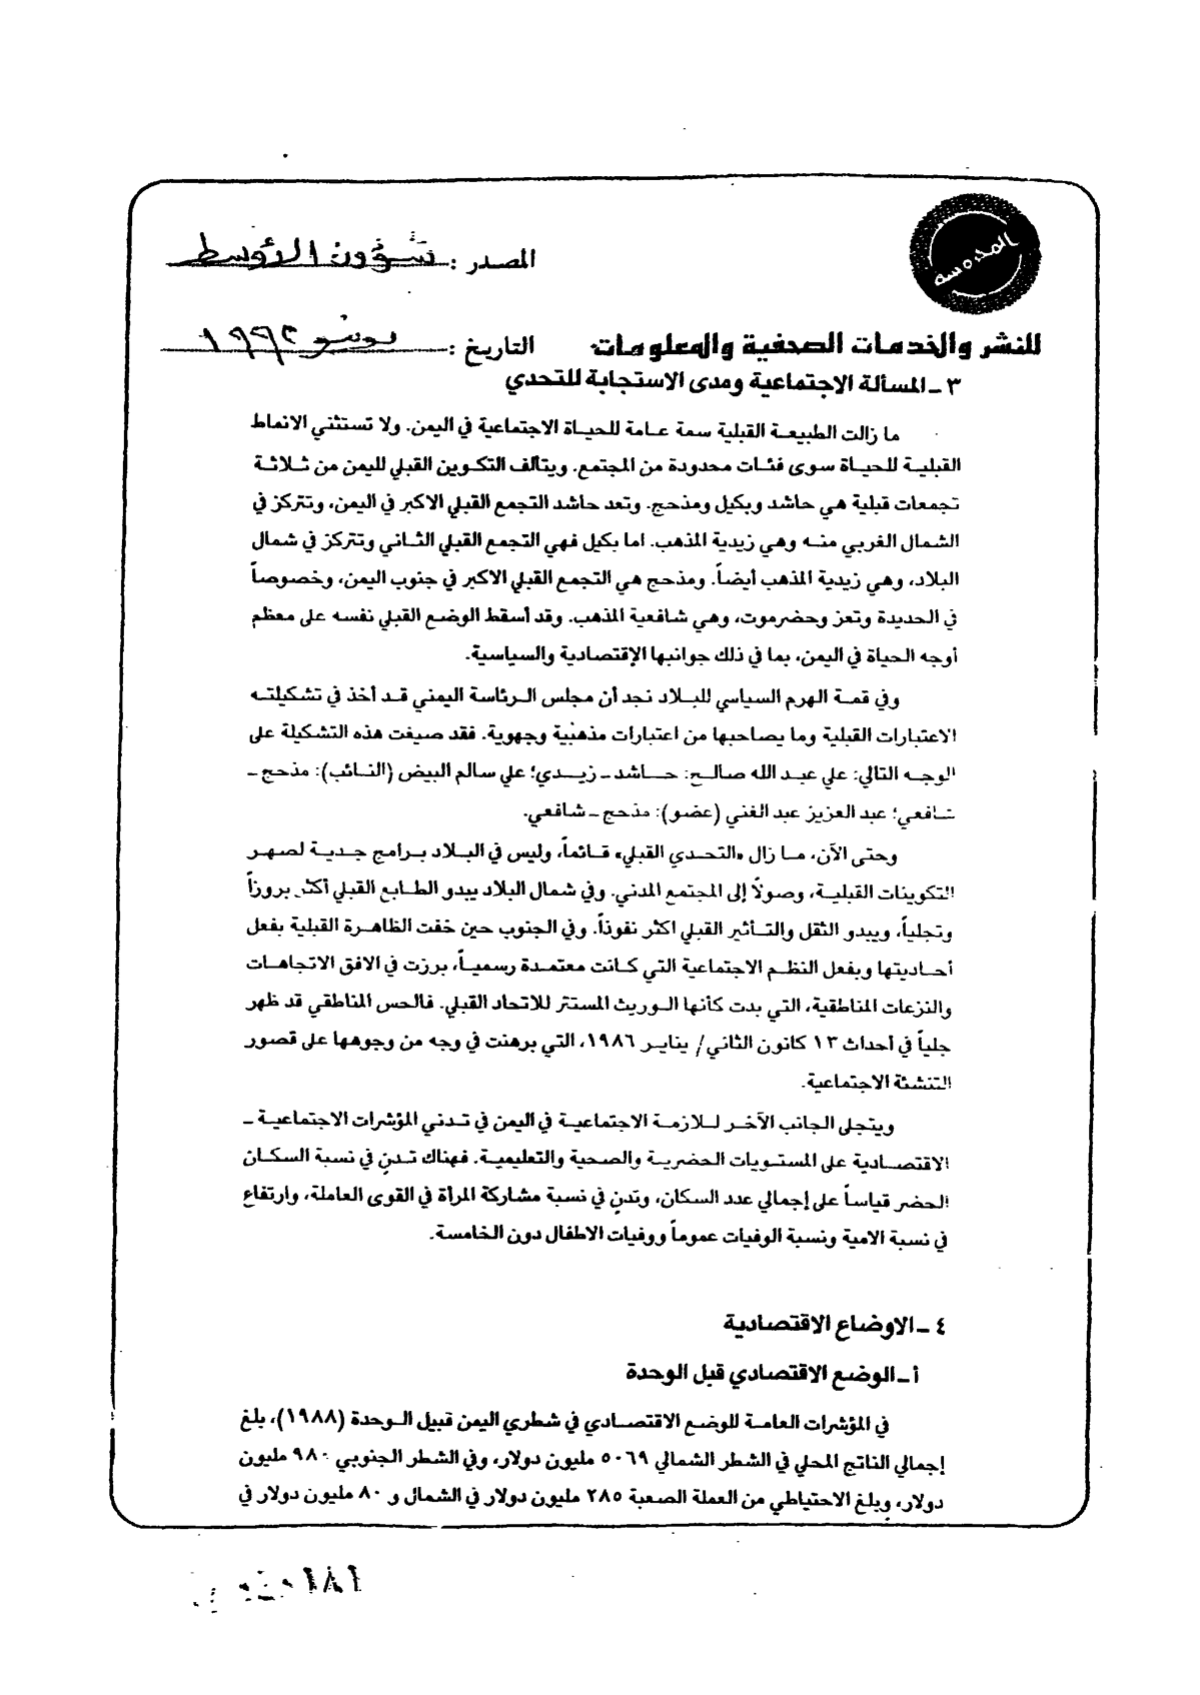 المصدر : شؤون الأوسط
للنشر والخدمات الصحفية والمعلومات
التاريخ : يونيو ١٩٩٢
٣ ــ المسألة الاجتماعية ومدى الاستجابة للتحدي
ما زالت الطبيعة القبلية سمة عامة للحياة الاجتماعية في اليمن. ولا تستثني الانماط
القبلية للحياة سوى فئات محدودة من المجتمع. ويتألف التكوين القبلي لليمن من ثلاثة
تجمعات قبلية هي حاشد وبكيل ومذحج. وتعد حاشد التجمع القبلي الاكبر في اليمن، وتتركز في
الشمال الغربي منه وهي زيدية المذهب. اما بكيل فهي التجمع القبلي الثاني وتتركز في شمال
البلاد، وهي زيدية المذهب أيضاً. ومذحج هي التجمع القبلي الاكبر في جنوب اليمن، وخصوصاً
في الحديدة وتعز وحضرموت، وهي شافعية المذهب. وقد أسقط الوضع القبلي نفسه على معظم
أوجه الحياة في اليمن، بما في ذلك جوانبها الإقتصادية والسياسية.
وفي قمة الهرم السياسي للبلاد نجد أن مجلس الرئاسة اليمني قد أخذ في تشكيلته
الاعتبارات القبلية وما يصاحبها من اعتبارات مذهبية وجهوية. فقد صيغت هذه التشكيلة على
الوجه التالي: علي عبد الله صالح: حاشد ــ زيدي؛ علي سالم البيض (النائب): مذحج ــ
شافعي؛ عبد العزيز عبد الغني (عضو): مذحج ــ شافعي.
وحتى الآن، ما زال «التحدي القبلي» قائماً، وليس في البلاد برامج جدية لصهر
التكوينات القبلية، وصولاً إلى المجتمع المدني. وفي شمال البلاد يبدو الطابع القبلي أكثر بروزاً
وتجلياً، ويبدو الثقل والتأثير القبلي اكثر نفوذاً. وفي الجنوب حين خفت الظاهرة القبلية بفعل
أحاديتها وبفعل النظم الاجتماعية التي كانت معتمدة رسمياً، برزت في الافق الاتجاهات
والنزعات المناطقية، التي بدت كأنها الوريث المستتر للاتحاد القبلي. فالحس المناطقي قد ظهر
جلياً في أحداث ١٣ كانون الثاني/ يناير ١٩٨٦، التي برهنت في وجه من وجوهها على قصور
التنشئة الاجتماعية.
ويتجلى الجانب الآخر للازمة الاجتماعية في اليمن في تدني المؤشرات الاجتماعية ــ
الاقتصادية على المستويات الحضرية والصحية والتعليمية. فهناك تدنٍ في نسبة السكان
الحضر قياساً على إجمالي عدد السكان، وتدنٍ في نسبة مشاركة المرأة في القوى العاملة، وارتفاع
في نسبة الامية ونسبة الوفيات عموماً ووفيات الاطفال دون الخامسة.
٤ ــ الاوضاع الاقتصادية
أ ــ الوضع الاقتصادي قبل الوحدة
في المؤشرات العامة للوضع الاقتصادي في شطري اليمن قبيل الوحدة (١٩٨٨)، بلغ
إجمالي الناتج المحلي في الشطر الشمالي ٥٠٦٩ مليون دولار، وفي الشطر الجنوبي ٩٨٠ مليون
دولار، وبلغ الاحتياطي من العملة الصعبة ٢٨٥ مليون دولار في الشمال و ٨٠ مليون دولار في